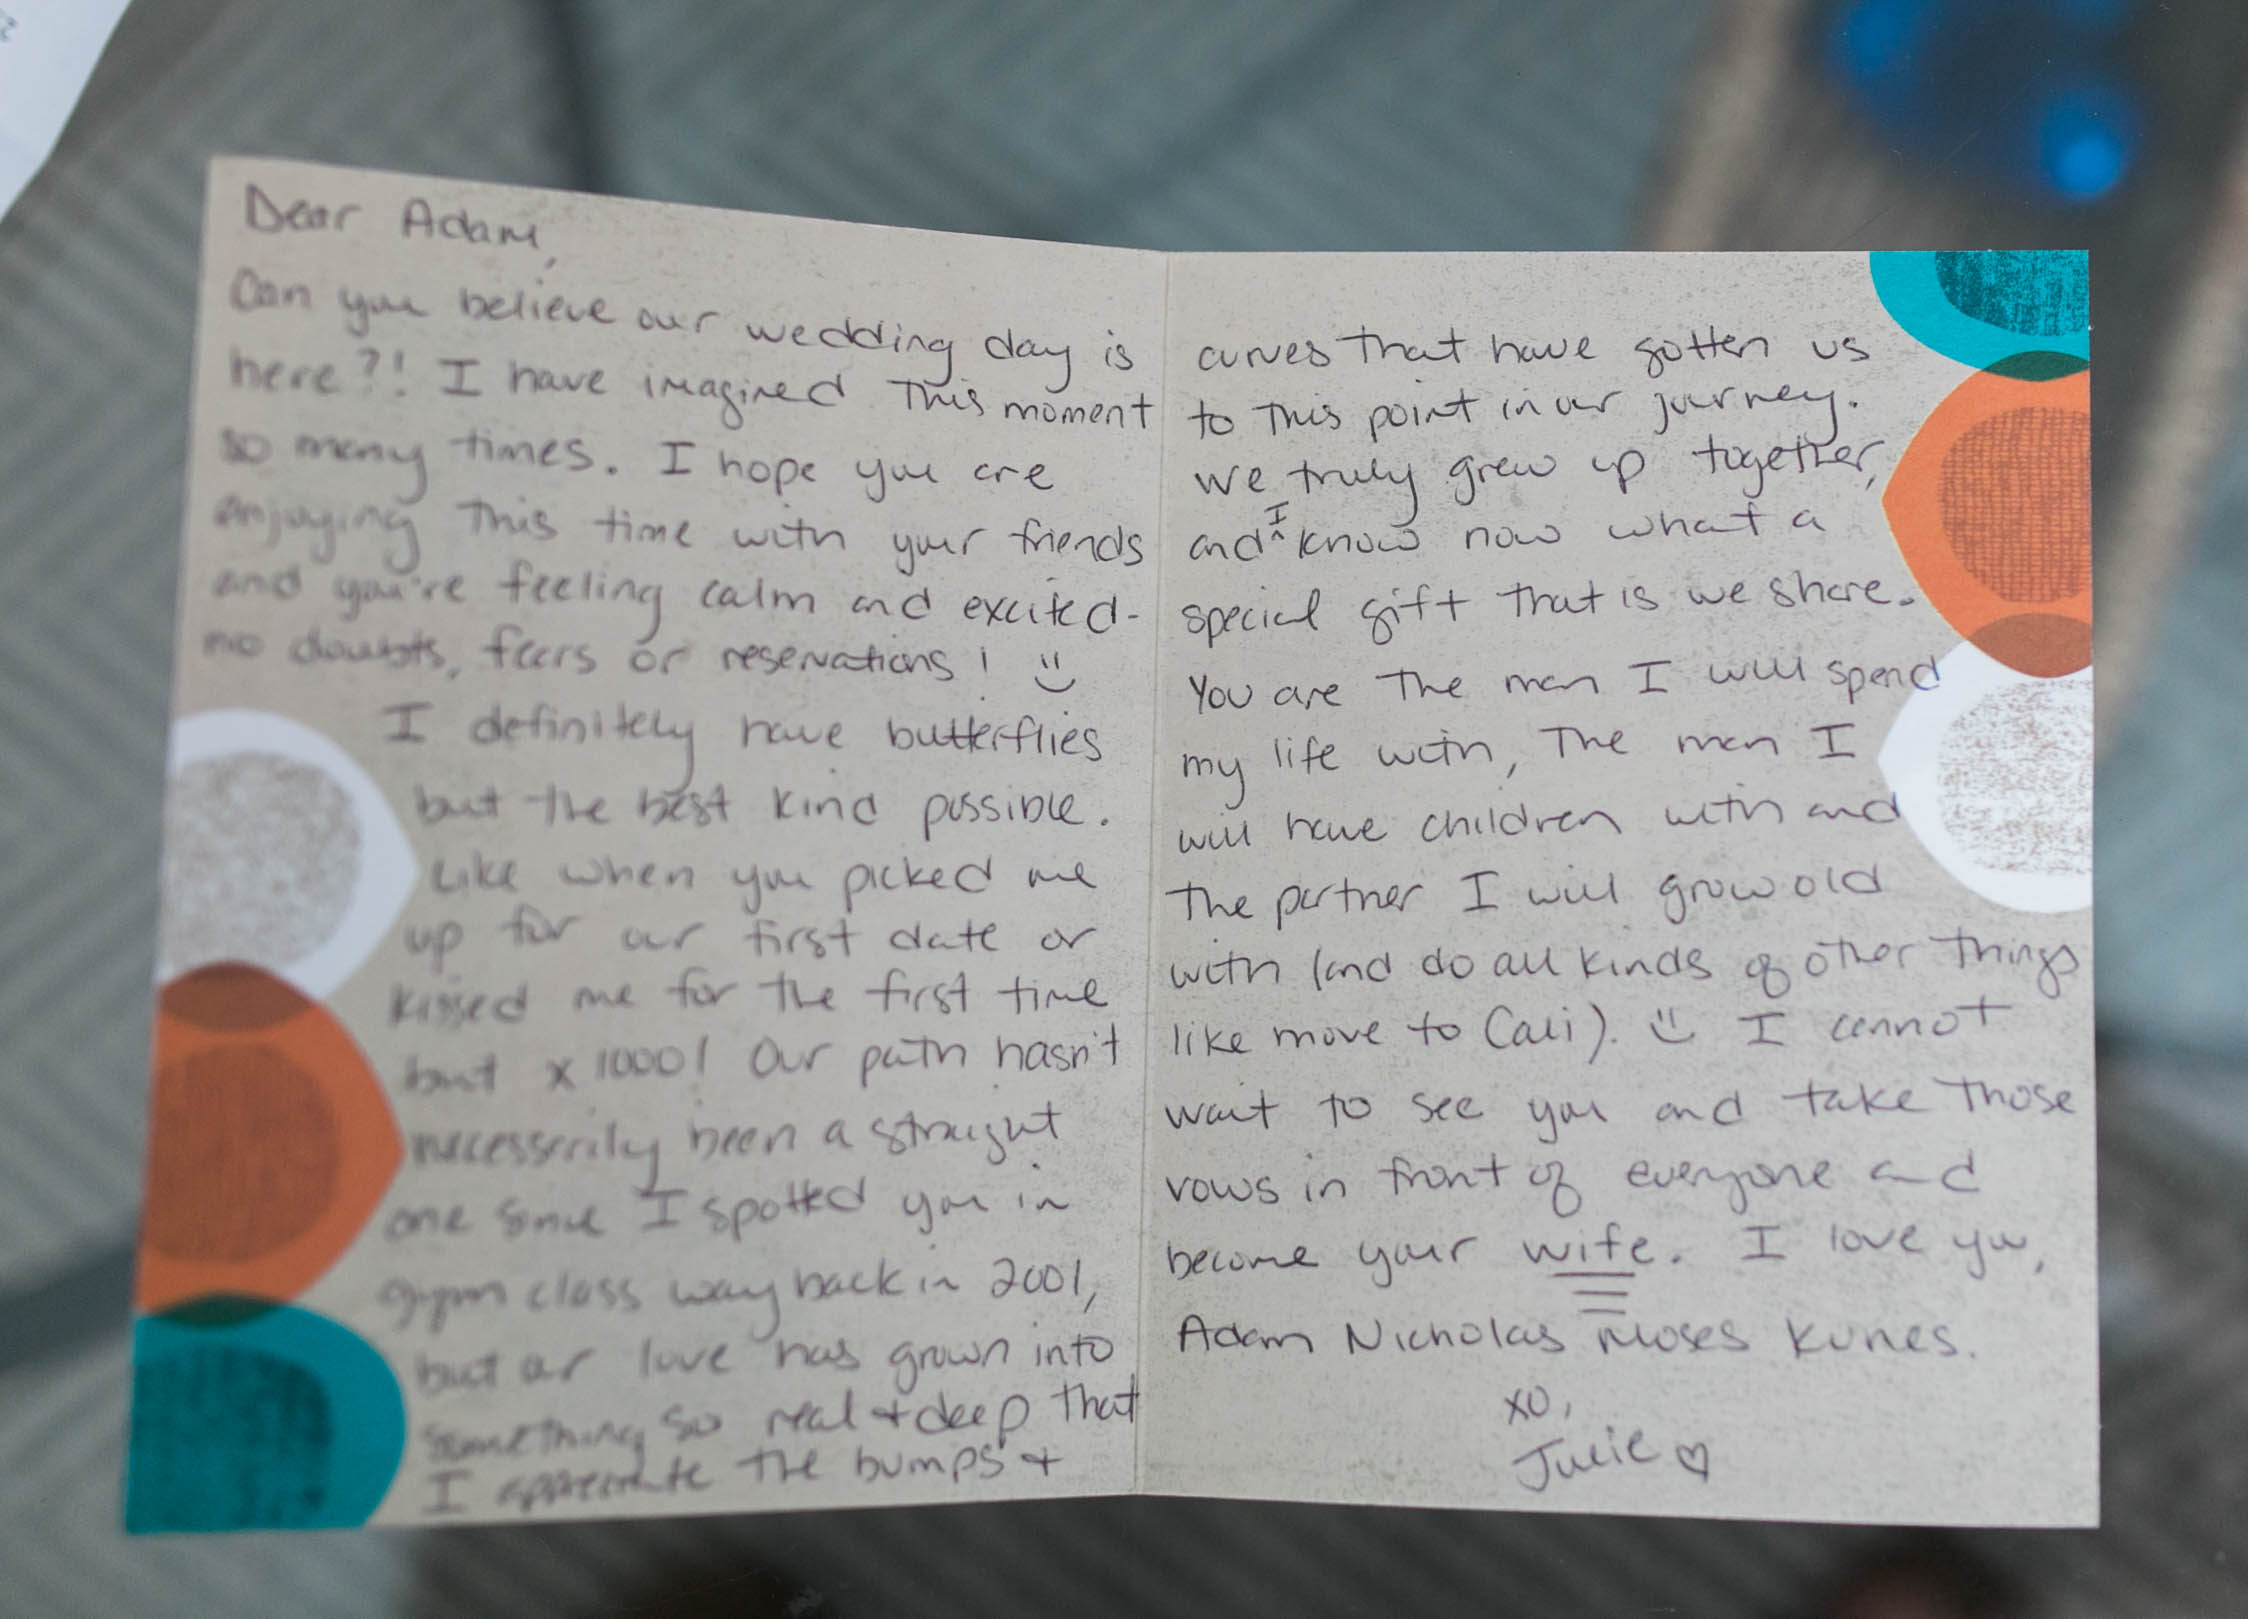 Dear Adam,
Can you believe our wedding day is
here?! I have imagined this moment
so many times. I hope you are
enjoying this time with your friends
and you're feeling calm and excited-
no doubts, fears or reservations! :)
I definitely have butterflies
but the best kind possible.
Like when you picked me
up for our first date or
kissed me for the first time
but x 1000! Our path hasn't
necesserily been a straight
one since I spotted you in
gym class way back in 2001,
but our love has grown into
something so real + deep that
I appreciate the bumps +
curves that have gotten us
to this point in our journey.
We truly grew up together,
and I know now what a
special gift that is we share.
You are the man I will spend
my life with, the man I
will have children with and
the partner I will grow old
with (and do all kinds of other things
like move to Cali). :) I cannot
wait to see you and take those
vows in front of everyone and
become your wife. I love you,
Adam Nicholas Moses Kunes.
xo,
Julie ♡